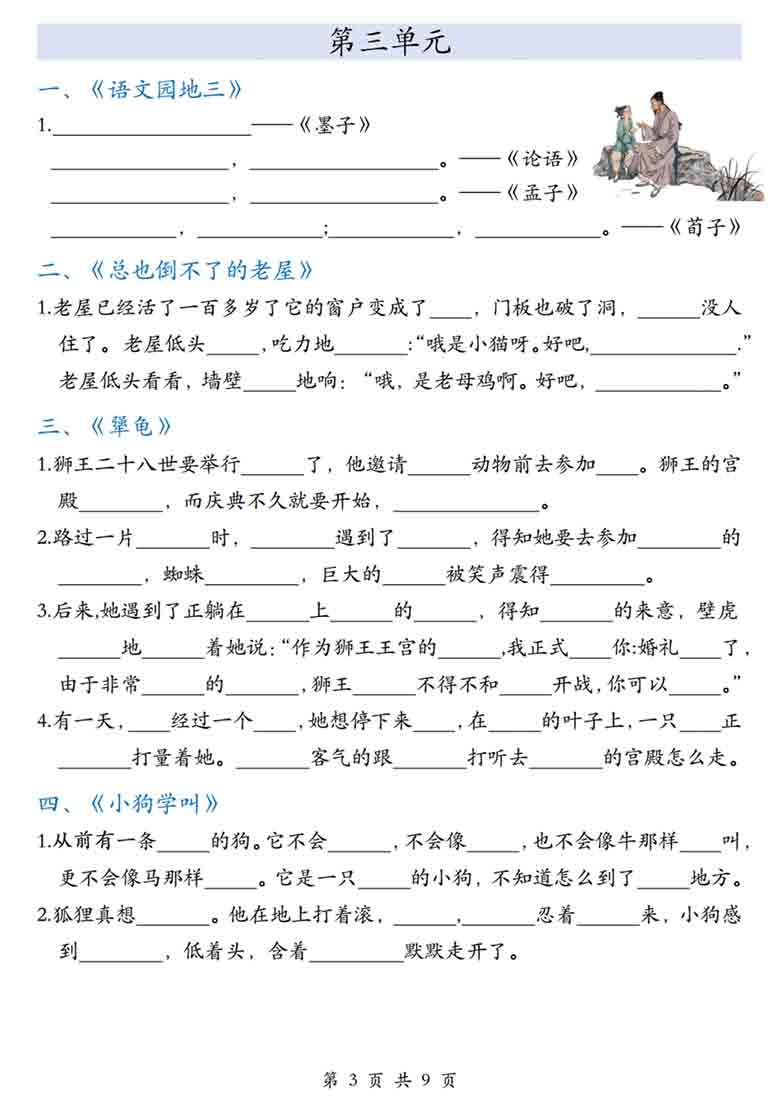 第三单元
一、《语文园地三》
1.__________________——《墨子》
________________，_________________。——《论语》
________________，_________________。——《孟子》
___________，___________;___________，___________。——《荀子》
二、《总也倒不了的老屋》
1.老屋已经活了一百多岁了它的窗户变成了____，门板也破了洞，______没人
住了。老屋低头_____,吃力地_______:“哦是小猫呀。好吧,______________.”
老屋低头看看，墙壁_____地响：“哦，是老母鸡啊。好吧，____________。”
三、《犟龟》
1.狮王二十八世要举行______了，他邀请______动物前去参加____。狮王的宫
殿________，而庆典不久就要开始，______________。
2.路过一片_______时，________遇到了_______，得知她要去参加________的
________，蜘蛛_________，巨大的______被笑声震得_________。
3.后来,她遇到了正躺在______上______的______，得知_______的来意，壁虎
______地______着她说：“作为狮王王宫的______,我正式____你:婚礼____了，
由于非常______的_______,狮王______不得不和_____开战,你可以_____。”
4.有一天，____经过一个____,她想停下来____,在_____的叶子上,一只____正
_______打量着她。_______客气的跟_______打听去_______的宫殿怎么走。
四、《小狗学叫》
1.从前有一条_____的狗。它不会______,不会像_____,也不会像牛那样____叫，
更不会像马那样_____。它是一只_____的小狗，不知道怎么到了_____地方。
2.狐狸真想_______。他在地上打着滚，______,_______忍着______来，小狗感
到________，低着头，含着_________默默走开了。
第 3 页 共 9 页